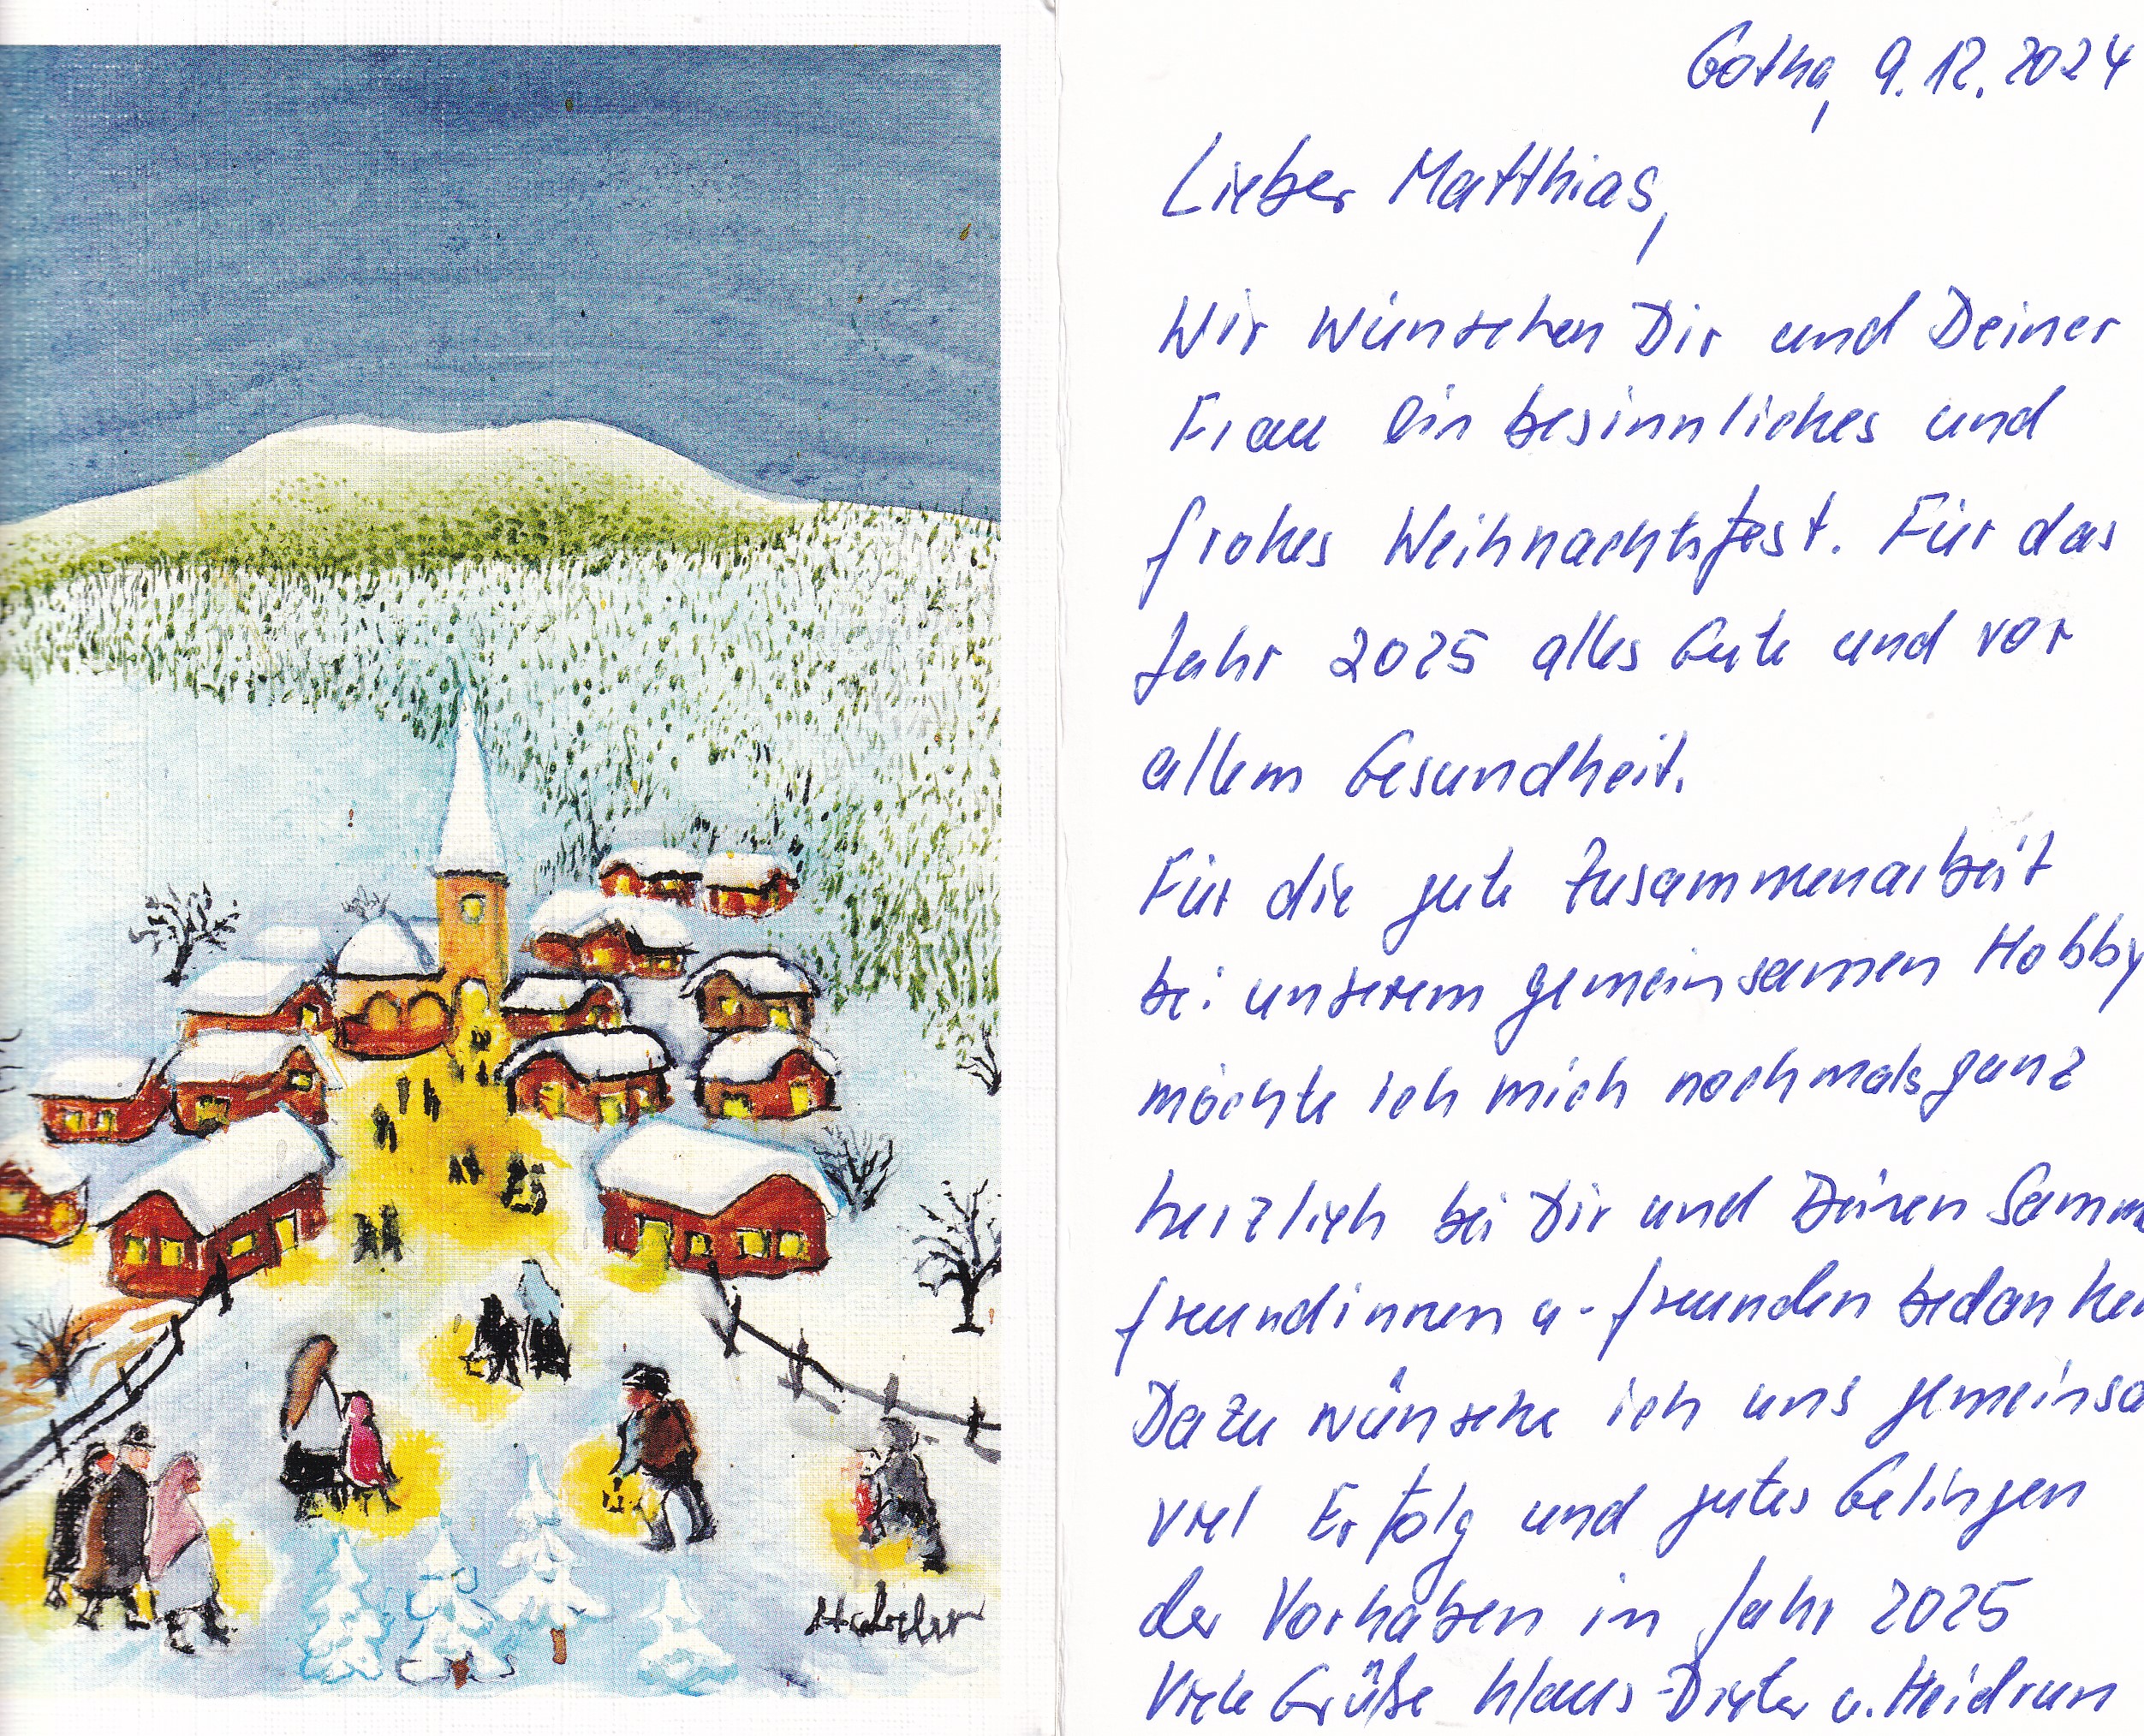 Gotha, 9.12.2024
Lieber Matthias,
Wir wünschen Dir und Deiner
Frau ein besinnliches und
frohes Weihnachtsfest. Für das
Jahr 2025 alles Gute und vor
allem Gesundheit.
Für die gute Zusammenarbeit
bei unserem gemeinsamen Hobby
möchte ich mich nochmals ganz
herzlich bei Dir und Deinen Samm
freundinnen u. -freunden bedanken
Dazu wünsche ich uns gemeinsa
viel Erfolg und gutes Gelingen
der Vorhaben in Jahr 2025
Viele Grüße Klaus-Dieter u. Heidrun